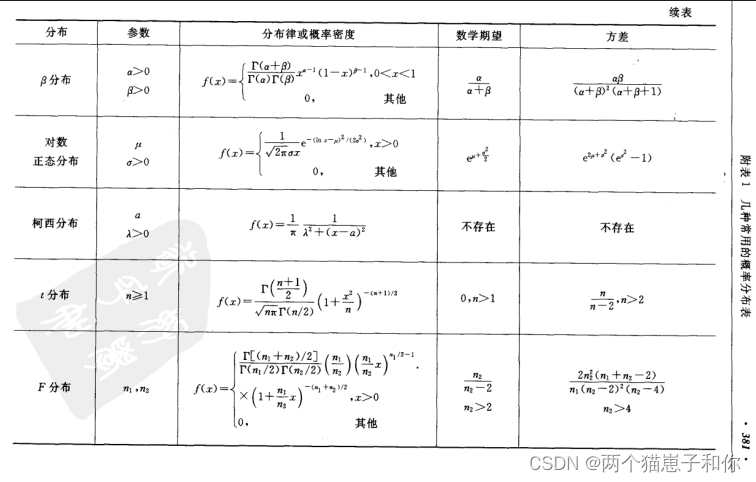 续表
分布 参数 分布律或概率密度 数学期望 方差
β分布 α>0 β>0 f(x)={Γ(α+β)/(Γ(α)Γ(β)) x^(α-1)(1-x)^(β-1), 0<x<1 α/(α+β) αβ/((α+β)²(α+β+1))
0, 其他
对数
正态分布 μ σ>0 f(x)={1/(√(2π)σx) e^(-(ln x-μ)²/(2σ²)), x>0 e^(μ+σ²/2) e^(2μ+σ²)(e^(σ²)-1)
0, 其他
柯西分布 a λ>0 f(x)=1/π 1/(λ²+(x-a)²) 不存在 不存在
t分布 n≥1 f(x)=Γ((n+1)/2)/(√(nπ)Γ(n/2)) (1+x²/n)^(-(n+1)/2) 0,n>1 n/(n-2),n>2
F分布 n₁,n₂ f(x)={Γ[(n₁+n₂)/2]/(Γ(n₁/2)Γ(n₂/2)) (n₁/n₂)(n₁/n₂ x)^(n₁/2-1)· n₂/(n₂-2) 2n₂²(n₁+n₂-2)/(n₁(n₂-2)²(n₂-4))
×(1+n₁/n₂ x)^(-(n₁+n₂)/2), x>0 n₂>2 n₂>4
0, 其他
附表1 几种常用的概率分布表
·381·
CSDN @两个猫崽子和你